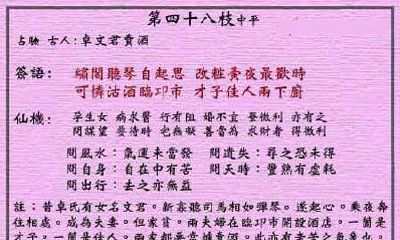 第四十八枝中平
占驗 古人:卓文君賣酒
簽語: 繡閣聽琴自起思 改粧黃夜最歡時
可憐沽酒臨邛市 才子佳人兩下廚
仙機: 孕生女 病求醫 行有阻 婚不宜 蠶微利 亦有之
問謀望 要待時 宅無礙 善當為 求財者 得微利
問風水:氣運未當發 問遺失:尋之恐未得
問自身:自在中有苦 問天時:豐熟有虛耗
問出行:去之亦無益
註:昔卓氏有女名文君。新寡聽司馬相如彈琴。遂起心。乘夜奔
住相處。成為夫妻。但家貧。兩夫婦在臨邛市開設酒店。一箇是
才子。一箇是佳人。